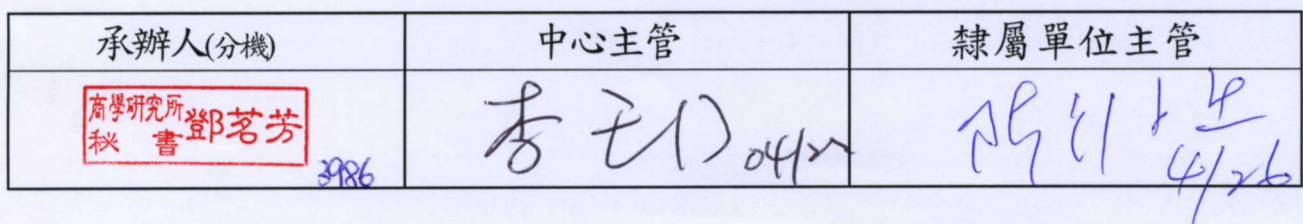 承辦人(分機)
中心主管
隸屬單位主管
商學研究所
秘 書
鄧茗芳
3986
李
04/22
4/26